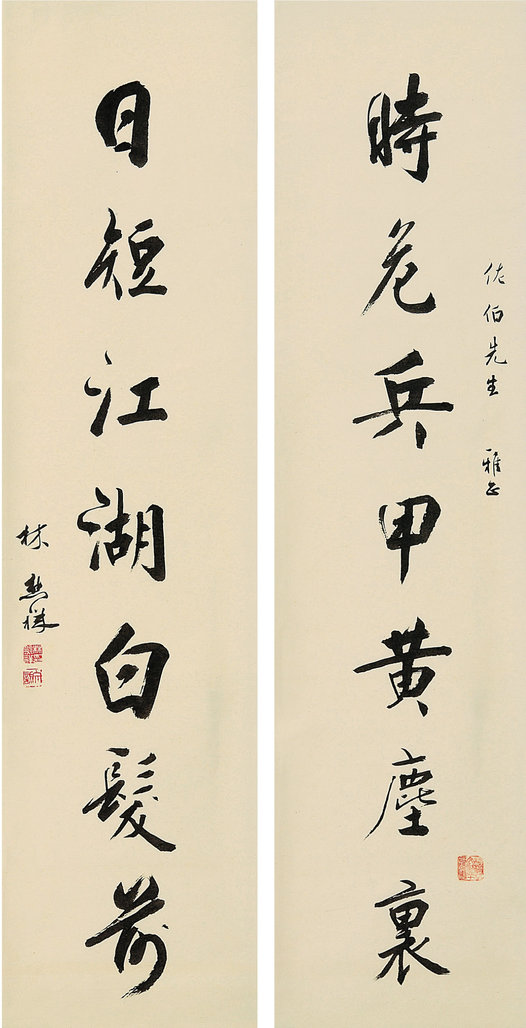 佐伯先生 雅正
時危兵甲黃塵裏
日短江湖白髮前
林熊祥